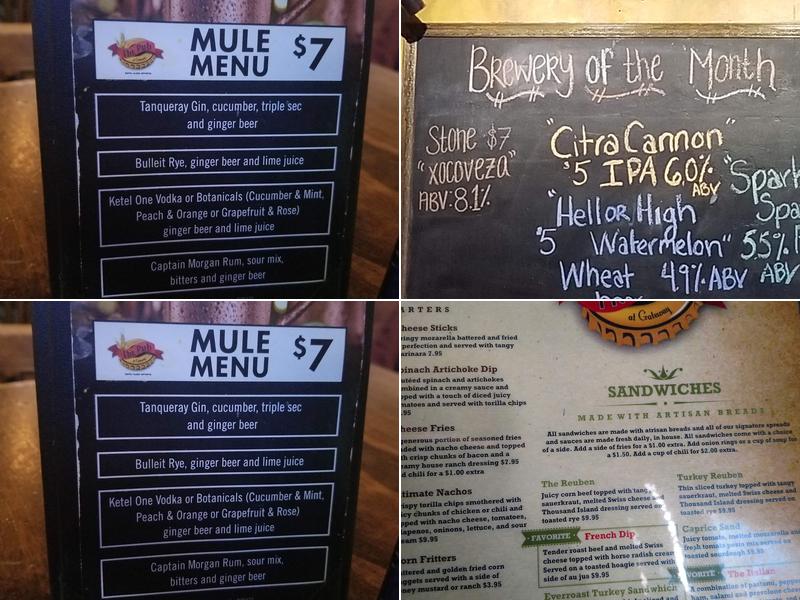 The Pub
MULE
MENU
$7
Tanqueray Gin, cucumber, triple sec
and ginger beer
Bulleit Rye, ginger beer and lime juice
Ketel One Vodka or Botanicals (Cucumber & Mint,
Peach & Orange or Grapefruit & Rose)
ginger beer and lime juice
Captain Morgan Rum, sour mix,
bitters and ginger beer
Brewery of the Month
Stone $7
"xocoveza"
ABV: 8.1%
"Citra Cannon"
$5 IPA 6.0%
ABV
"Hell or High
$5 Watermelon"
Wheat 4.9% ABV
"Spark
Spa
5.5%
ABV
The Pub
MULE
MENU
$7
Tanqueray Gin, cucumber, triple sec
and ginger beer
Bulleit Rye, ginger beer and lime juice
Ketel One Vodka or Botanicals (Cucumber & Mint,
Peach & Orange or Grapefruit & Rose)
ginger beer and lime juice
Captain Morgan Rum, sour mix,
bitters and ginger beer
ARTERS
heese Sticks
ringy mozarella battered and fried
perfection and served with tangy
arinara 7.95
pinach Artichoke Dip
utéed spinach and artichokes
mbined in a creamy sauce and
pped with a touch of diced juicy
matoes and served with torilla chips
.95
heese Fries
enerous portion of seasoned fries
aded with nacho cheese and topped
th crisp chunks of bacon and a
eamy house ranch dressing $7.95
d chili for a $1.00 extra
timate Nachos
ispy torilla chips smothered with
icy chunks of chicken or chili and
pped with nacho cheese, tomatoes,
lapenos, oninons, lettuce, and sour
eam $9.95
orn Fritters
ttered and golden fried corn
uggets served with a side of
ney mustard or ranch $3.95
of Galway
SANDWICHES
MADE WITH ARTISAN BREADS
All sandwiches are made with atrisan breads and all of our signature spreads
and sauces are made fresh daily, in house. All sandwiches come with a choice
of a side. Add a side of fries for a $1.00 extra. Add onion rings or a cup of soup for
a $1.50. Add a cup of chili for $2.00 extra.
The Reuben
Juicy corn beef topped with tangy
sauerkraut, melted Swiss cheese and
Thousand Island dressing served on
toasted rye $9.95
FAVORITE French Dip
Tender roast beef and melted Swiss
cheese topped with horse radish cream
Served on a toasted hoagie served with
side of au jus $9.95
Everroast Turkey Sandwich
Turkey Reuben
Thin sliced turkey topped with tangy
sauerkraut, melted Swiss cheese and
Thousand Island dressing served on
toasted rye $9.95
Caprice Sand
Juicy tomato, melted mozzarella and
fresh tomato pesto mix served on
toasted sourdough $9.95
FAVORITE The Italian
A combination of pastrami, pepper
ham, salami and provolone chees